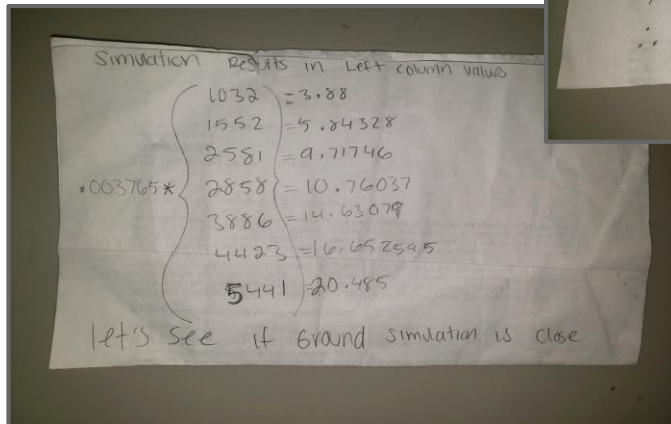 Simulation Results in Left column values
1032 = 3.88
1552 = 5.84328
2581 = 9.71746
.003765* 2858 = 10.76037
3886 = 14.63079
4423 = 16.652595
5441 = 20.485
let's see if Ground simulation is close